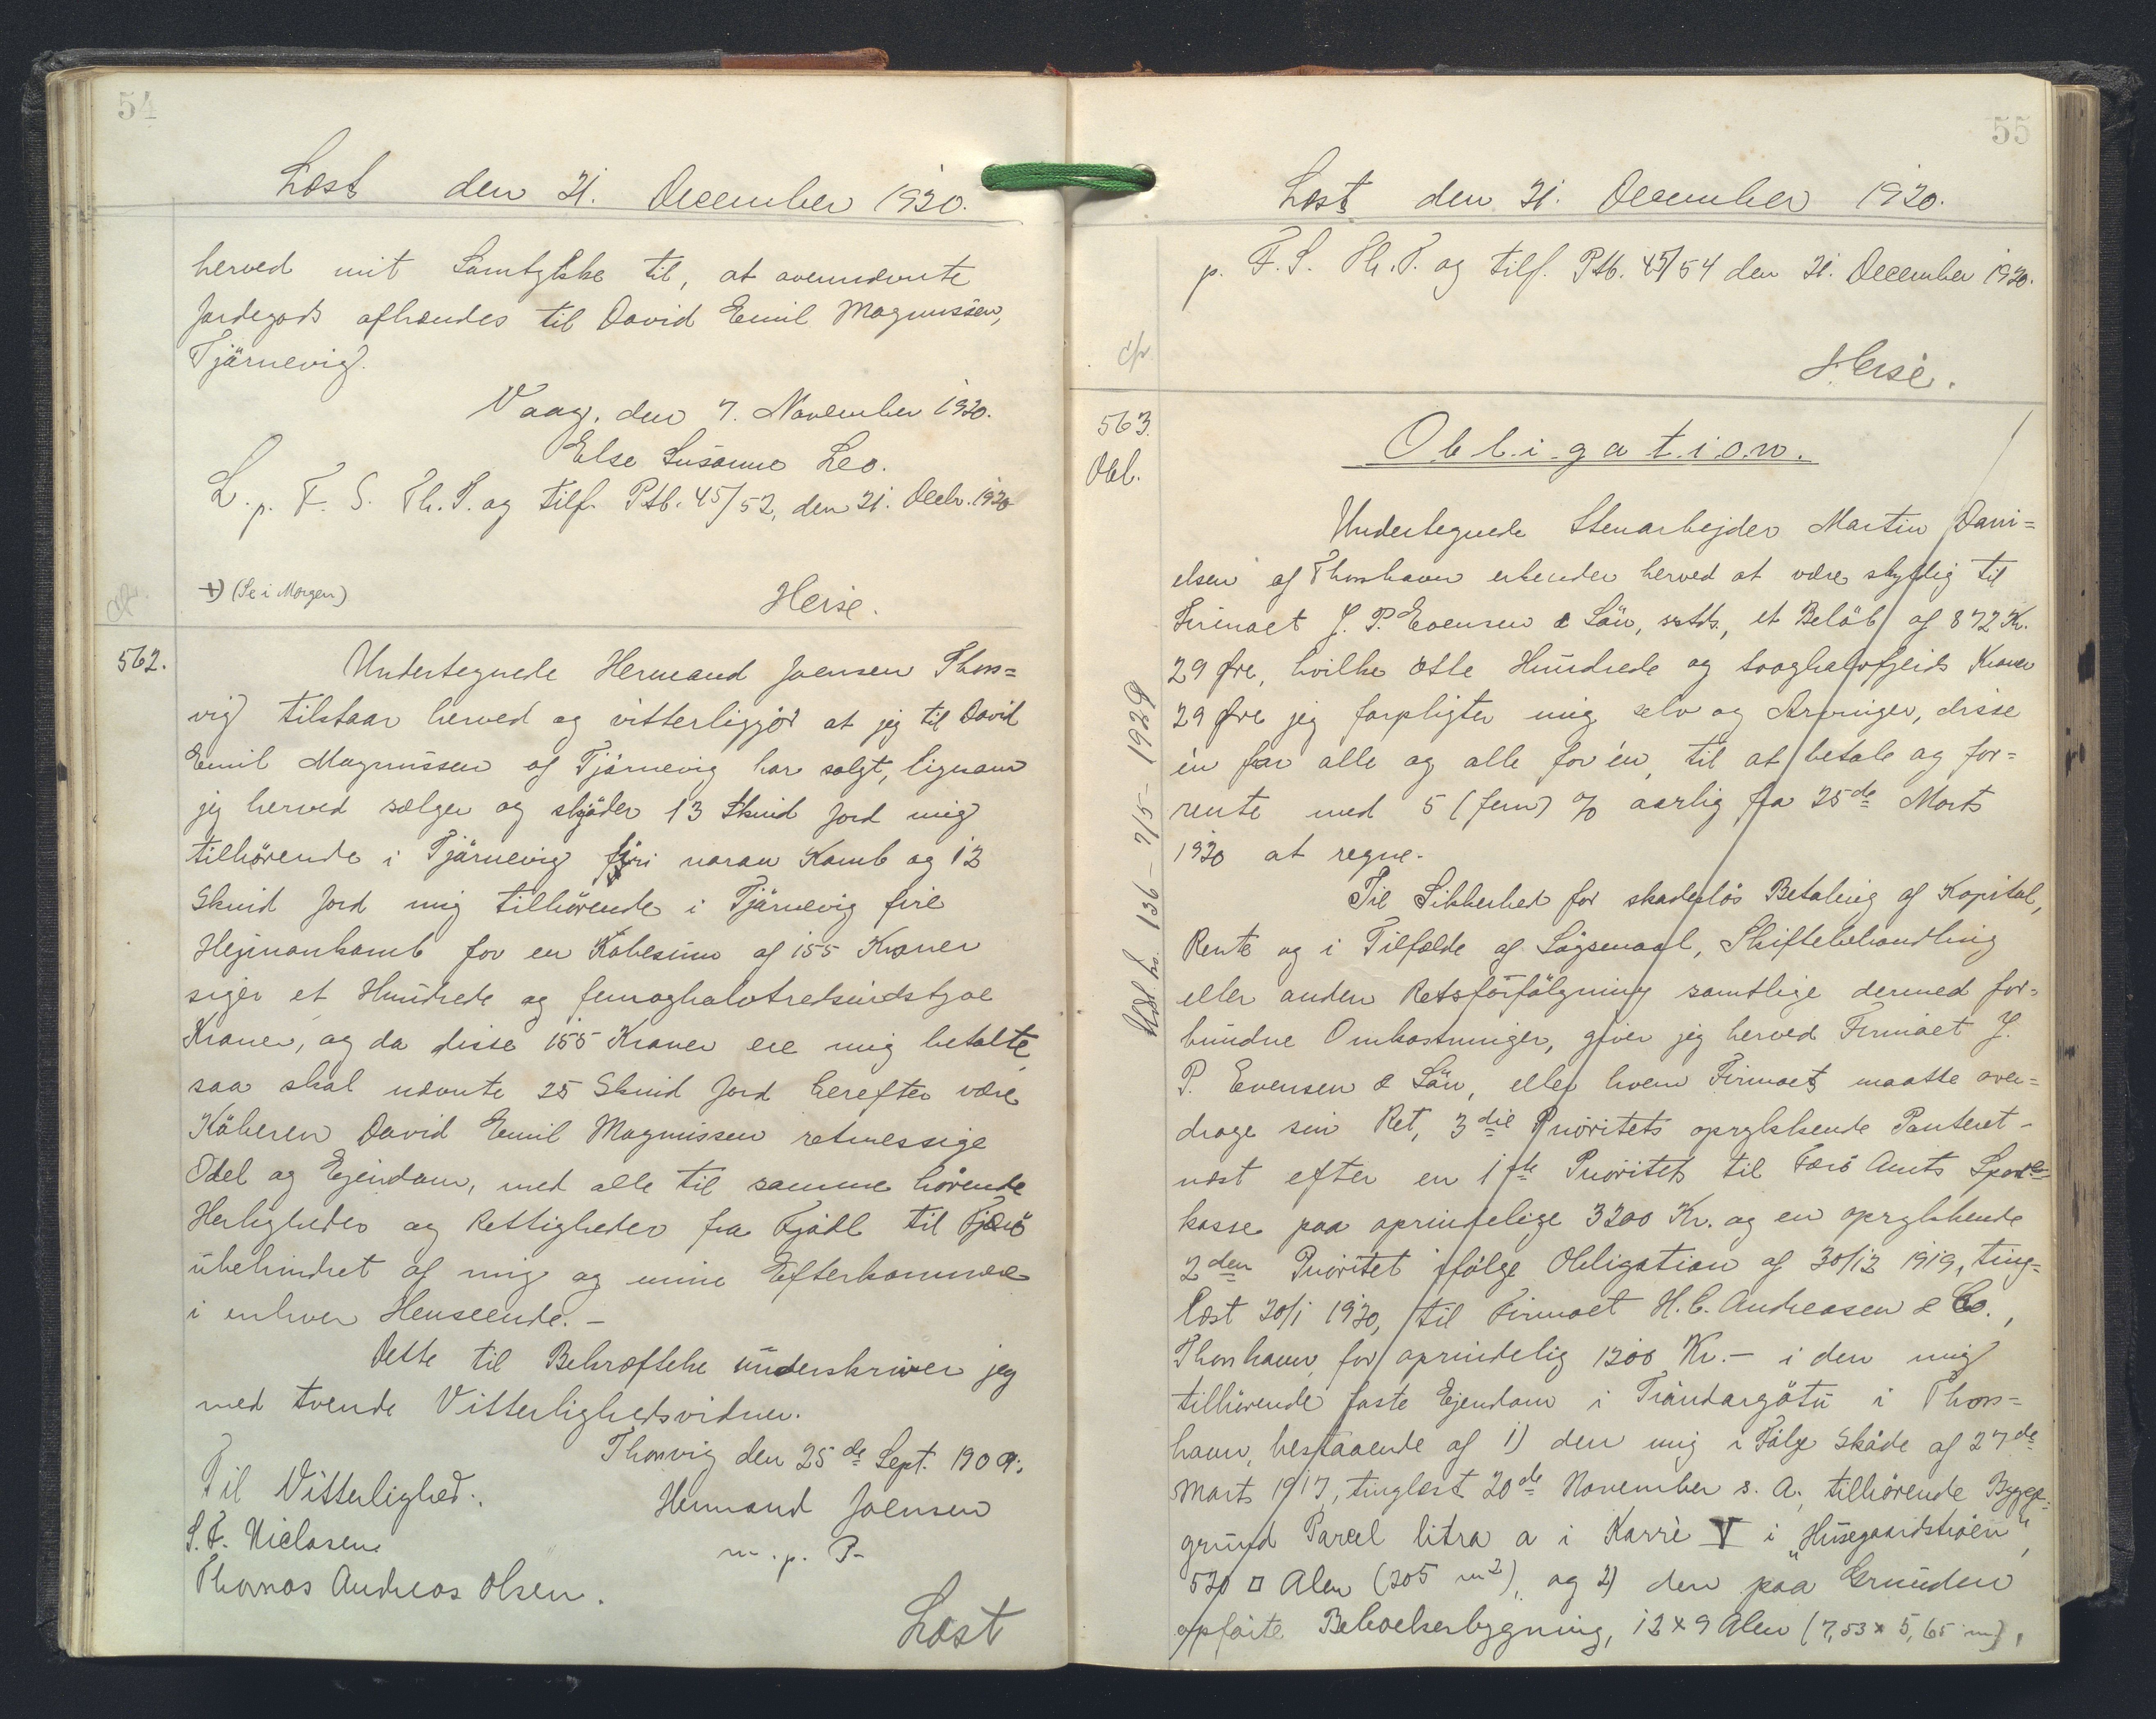 54
Læst den 21. December 1920.
herved mit Samtykke til, at ovennævnte
Jordegods afhændes til David Emil Magnussen,
Tjärnevig.
Vaag, den 7. November 1920.
Else Susanne Leo.
L. p. F. S. Th. T. og tilf. Ptb. 45/52, den 21. Decbr. 1920
+) (Se i Morgen)
Heise.
562.
Undertegnede Hermand Joensen Thors=
vig tilstaar herved og vitterliggjör at jeg til David
Emil Magnussen af Tjärnevig har solgt, ligesom
jeg herved sælger og skjöder 13 Skind Jord mig
tilhörende i Tjärnevig firi noran Kamb og 12
Skind Jord mig tilhörende i Tjärnevig fire
Hejmankamb for en Köbesum af 155 Kroner
siger et Hundrede og femoghalvtredsindstyve
Kroner, og da disse 155 Kroner ere mig betalte
saa skal nævnte 25 Skind Jord herefter være
Köberen David Emil Magnussen retmessige
Odel og Ejendom, med alle til samme hörende
Herligheder og Rettigheder fra Fjadl til Fjærö
ubehindret af mig og mine Efterkommere
i enhver Henseende. -
Dette til Bekræftelse underskriver jeg
med tvende Vitterlighedsvidner.
Thorsvig den 25de Sept. 1909.
Til Vitterlighed:
Hermand Joensen
S. F. Niclasen
m. p. P.
Thomas Andreas Olsen.
Læst
55
Læst den 21. December 1920.
p. F. S. Th. T. og tilf. Ptb. 45/54 den 21. December 1920.
cfr.
Heise.
563.
Obl.
Obligation.
Undertegnede Stenarbejder Martin Dani=
elsen af Thorshavn erkender herved at være skyldig til
Firmaet J. P. Evensen & Sön, sstds., et Belöb af 872 Kr.
29 Øre, hvilke otte Hundrede og tooghalvfjerds Kroner
29 Øre jeg forpligter mig selv og Arvinger, disse
én for alle og alle for én, til at betale og for=
rente med 5 (fem) % aarlig fra 25de Marts
1920 at regne.
Til Sikkerhed for skadeslös Betaling af Kapital,
Rente og i Tilfælde af Sögsmaal, Skiftebehandling
eller anden Retsforfölgning samtlige dermed for=
bundne Omkostninger, giver jeg herved Firmaet J.
P. Evensen & Sön, eller hvem Firmaet maatte over=
drage sin Ret, 3die Prioritets oprykkende Panteret -
næst efter en 1ste Prioritet til Færö Amts Spare=
kasse paa oprindelige 3200 Kr. og en oprykkende
2den Prioritet ifölge Obligation af 30/12 1919, ting=
læst 20/1 1920, til Firmaet H. C. Andreasen & Co.,
Thorshavn, for oprindelig 1200 Kr. - i den mig
tilhörende faste Ejendom i Trändargötu i Thors=
havn, bestaaende af 1) den mig i Fölge Sköde af 27de
Marts 1917, tinglæst 20de November s. A., tilhörende Bygge=
grund Parcel litra a i Karré V i "Husegaardströen",
520 □ Alen (205 m2), og 2) den paa Grunden
opförte Beboelsesbygning, 12 x 9 Alen (7,53 x 5,65 m),
Udsl. fo. 136 - 7/5 - 1929